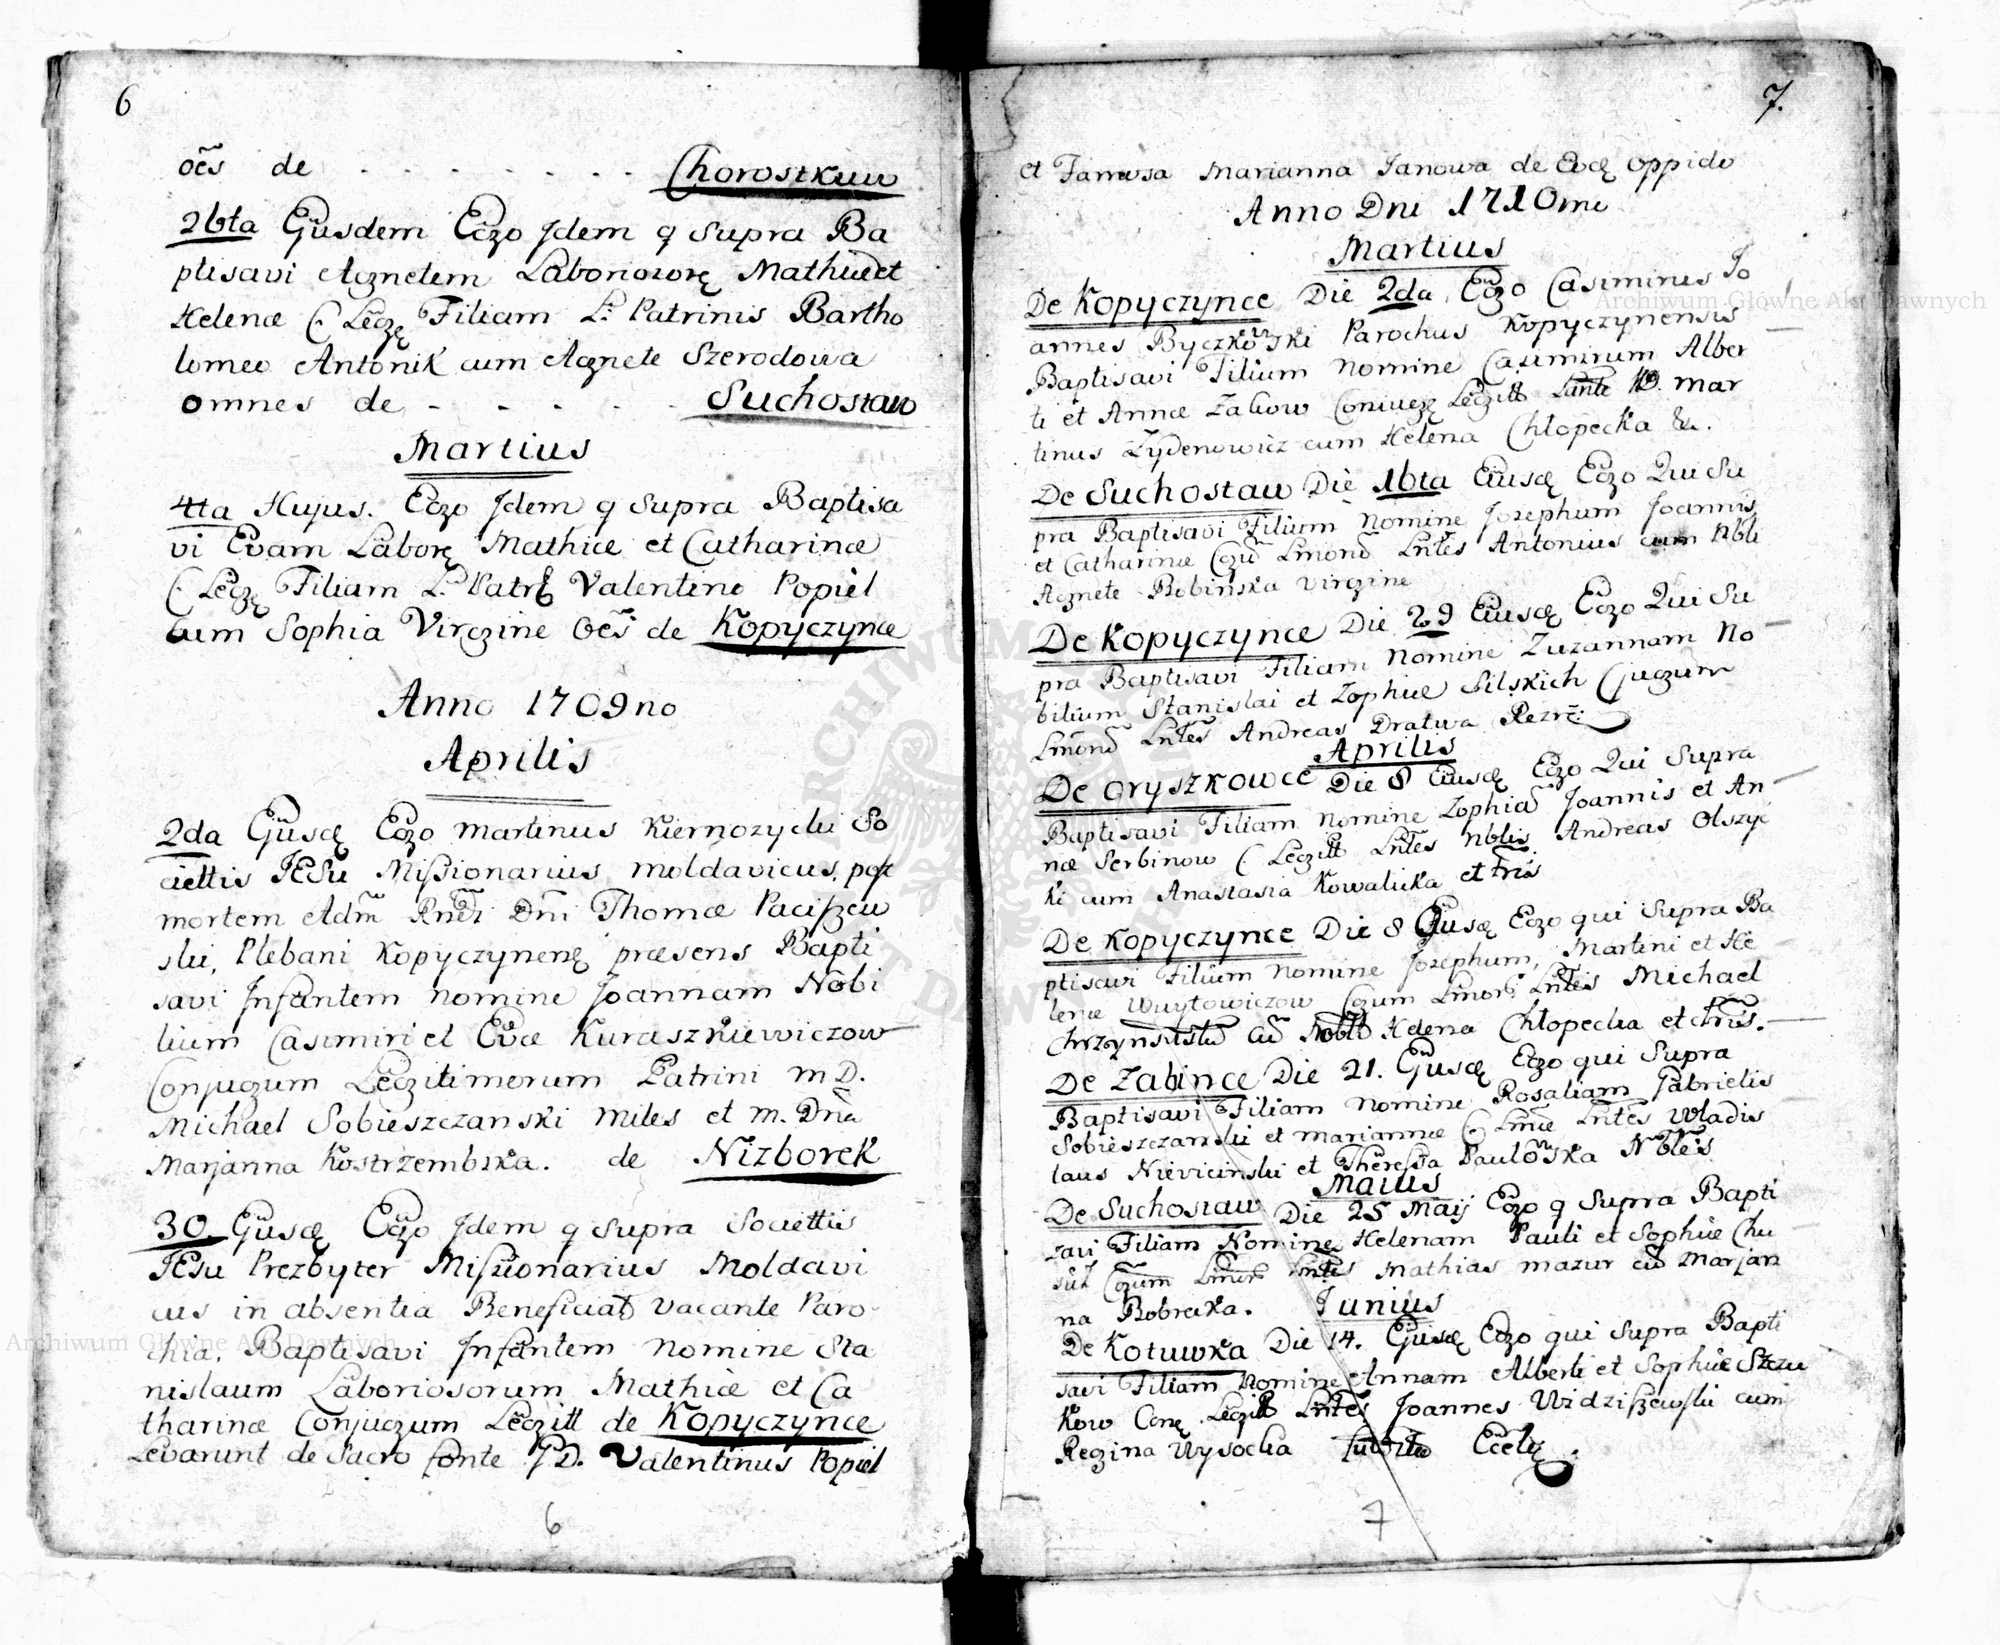 6
oēs de . . . . . . . Chorostkuw
26ta Eiusdem Ego Jdem q supra Ba
ptisavi Agnetem Laboriozorę Mathiæ et
Helenæ C. Legę Filiam L. Patrinis Bartho
lomeo Antonik cum Agnete Szerodowa
omnes de - - - - - Suchostaw
Martius
4ta Hujus. Ego Jdem q supra Baptisa
vi Evam Laborę Mathiæ et Catharinæ
C. Legę Filiam L. Patr Valentino Popiel
cum Sophia Virgine Oēs de Kopyczynce
Anno 1709no
Aprilis
2da Eiusdę Ego Martinus Kiernozycki So
ciettis JEsu Missionarius Moldavicus, post
mortem Adm Rndi Dni Thomæ Paciszew
ski, Plebani Kopyczynenę præsens Bapti
savi Jnfantem nomine Joannam Nobi
lium Casimiri et Evæ Kuraszkiewiczow
Conjugum Legitimorum Patrini M D.
Michael Sobieszczanski Miles et M. Dna
Marjanna Kostrzembska. de Nizborek
30. Eiusdę Ego Jdem q supra Societtis
JEsu Prezbyter Missionarius Moldavi
cus in absentia Beneficiat vacante Paro
chia, Baptisavi Jnfantem nomine Sta
nislaum Laboriosorum Mathiæ et Ca
tharinæ Conjugum Legitt de Kopyczynce
Levarunt de Sacro fonte PD. Valentinus Popiel
6
7.
et Famosa Marianna Janowa de Eodę oppido
Anno Dni 1710mo
Martius
De Kopyczynce Die 2da Ego Casimirus Jo
annes Byczkowski Parochus Kopyczynensis
Baptisavi Filium nomine Casimirum Alber
ti et Annæ Zakow Coniugę Legitt Lante MD. Mar
tinus Zydenowicz cum Helena Chłopecka &c.
De Suchostaw Die 16ta Eiusdę Ego Qui Su
pra Baptisavi Filium Nomine Jozephum Joannis
et Catharinæ Cgū Lmorū Lntēs Antonius cum Nbli
Agnete Bobinska virgine
De Kopyczynce Die 29 Eiusdę Ego Qui Su
pra Baptisavi Filiam Nomine Zuzannam No
bilium Stanislai et Zophiæ Silskich Cjugum
Lmorū Lntēs Andreas Dratwa Rezrē.
Aprilis
De Oryszkowce Die 8 Eiusdę Ego Qui Supra
Baptisavi Filiam Nomine Zophiā Joannis et An
næ Serbinow C Legitt Lntēs Nblis Andreas Olszyc
ki cum Anastasia Kowalicka et trīs
De Kopyczynce Die 8 Eiusdę Ego qui Supra Ba
ptisavi Filium nomine Jozephum, Martini et He
lenæ Wuytowiczow Cgum Lmorū Lntēs Michael
Chrzynskistū cū Nobli Helena Chłopecka et trīs.
De Zabince Die 21. Eiusdę Ego qui Supra
Baptisavi Filiam nomine Rosaliam Gabrielis
Sobieszczanski et Mariannæ C Lmæ Lntēs Wladis
laus Nievicinski et Theressa Paulowska Nblēs
Maius
De Suchostaw Die 25 Maij Ego q Supra Bapti
zavi Filiam Nomine Helenam Pauli et Sophiæ Chu
Cgum Lmorū Lntēs Mathias Mazur cū Marjan
na Bobrecka. Junius
De Kotuwka Die 14. Eiusdę Ego qui Supra Bapti
savi Filiam Nomine Annam Alberti et Sophiæ Szczu
kow Conę Legitt Lntēs Joannes Widziszewski cum
Regina Wysocka
7
ARCHIWUM GŁÓWNE AKT DAWNYCH
Archiwum Główne Akt Dawnych
Archiwum Główne Akt Dawnych